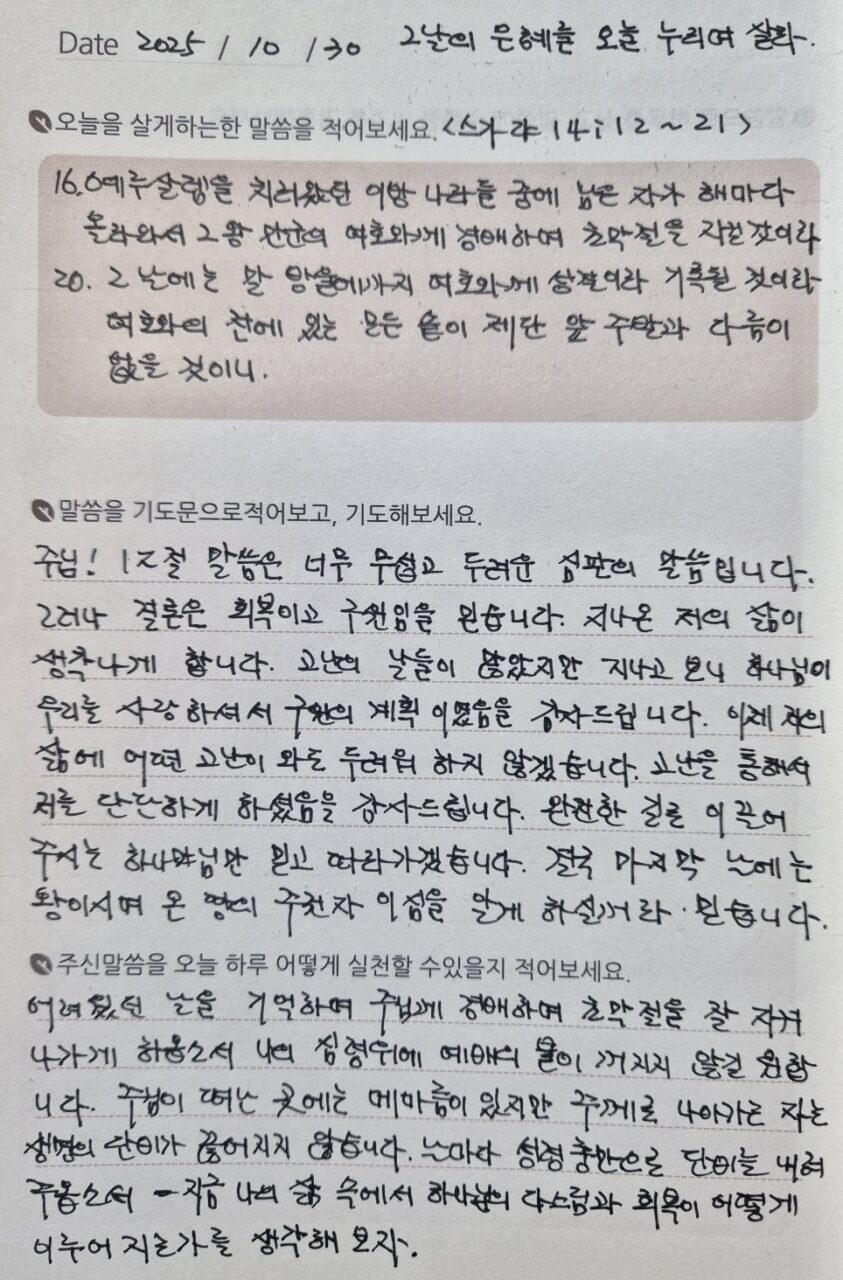 Date 2025 / 10 / 30 그날의 은혜를 오늘 누리며 살라.
오늘을 살게하는한 말씀을 적어보세요. <스가랴 14:12~21>
16. 예루살렘을 치러왔던 이방 나라들 중에 남은 자가 해마다
올라와서 그 왕 만군의 여호와께 경배하며 초막절을 지킬것이라
20. 그 날에는 말 방울에까지 여호와께 성결이라 기록될 것이라
여호와의 전에 있는 모든 솥이 제단 앞 주발과 다름이
없을 것이니.
말씀을 기도문으로적어보고, 기도해보세요.
주님! 12절 말씀은 너무 무섭고 두려운 심판의 말씀입니다.
그러나 결론은 회복이고 구원임을 믿습니다. 지나온 저의 삶이
생각나게 합니다. 고난의 날들이 많았지만 지나고 보니 하나님이
우리를 사랑하셔서 구원의 계획이였음을 감사드립니다. 이제 저의
삶에 어떤 고난이 와도 두려워 하지 않겠습니다. 고난을 통해서
저를 단단하게 하셨음을 감사드립니다. 완전한 길로 이끌어
주시는 하나님만 믿고 따라가겠습니다. 결국 마지막 날에는
왕이시며 온 땅의 주권자 이심을 알게 하실꺼라 믿습니다.
주신말씀을 오늘 하루 어떻게 실천할 수있을지 적어보세요.
어려웠던 날을 기억하며 주님께 경배하며 초막절을 잘 지켜
나가게 하옵소서 나의 심령위에 예배의 불이 꺼지지 않길 원합
니다. 주님이 떠난 곳에는 메마름이 있지만 주께로 나아가는 자는
생명의 단비가 끊어지지 않습니다. 날마다 성령충만으로 단비를 내려
주옵소서 - 지금 나의 삶 속에서 하나님의 다스림과 회복이 어떻게
이루어 지는가를 생각해 보자.